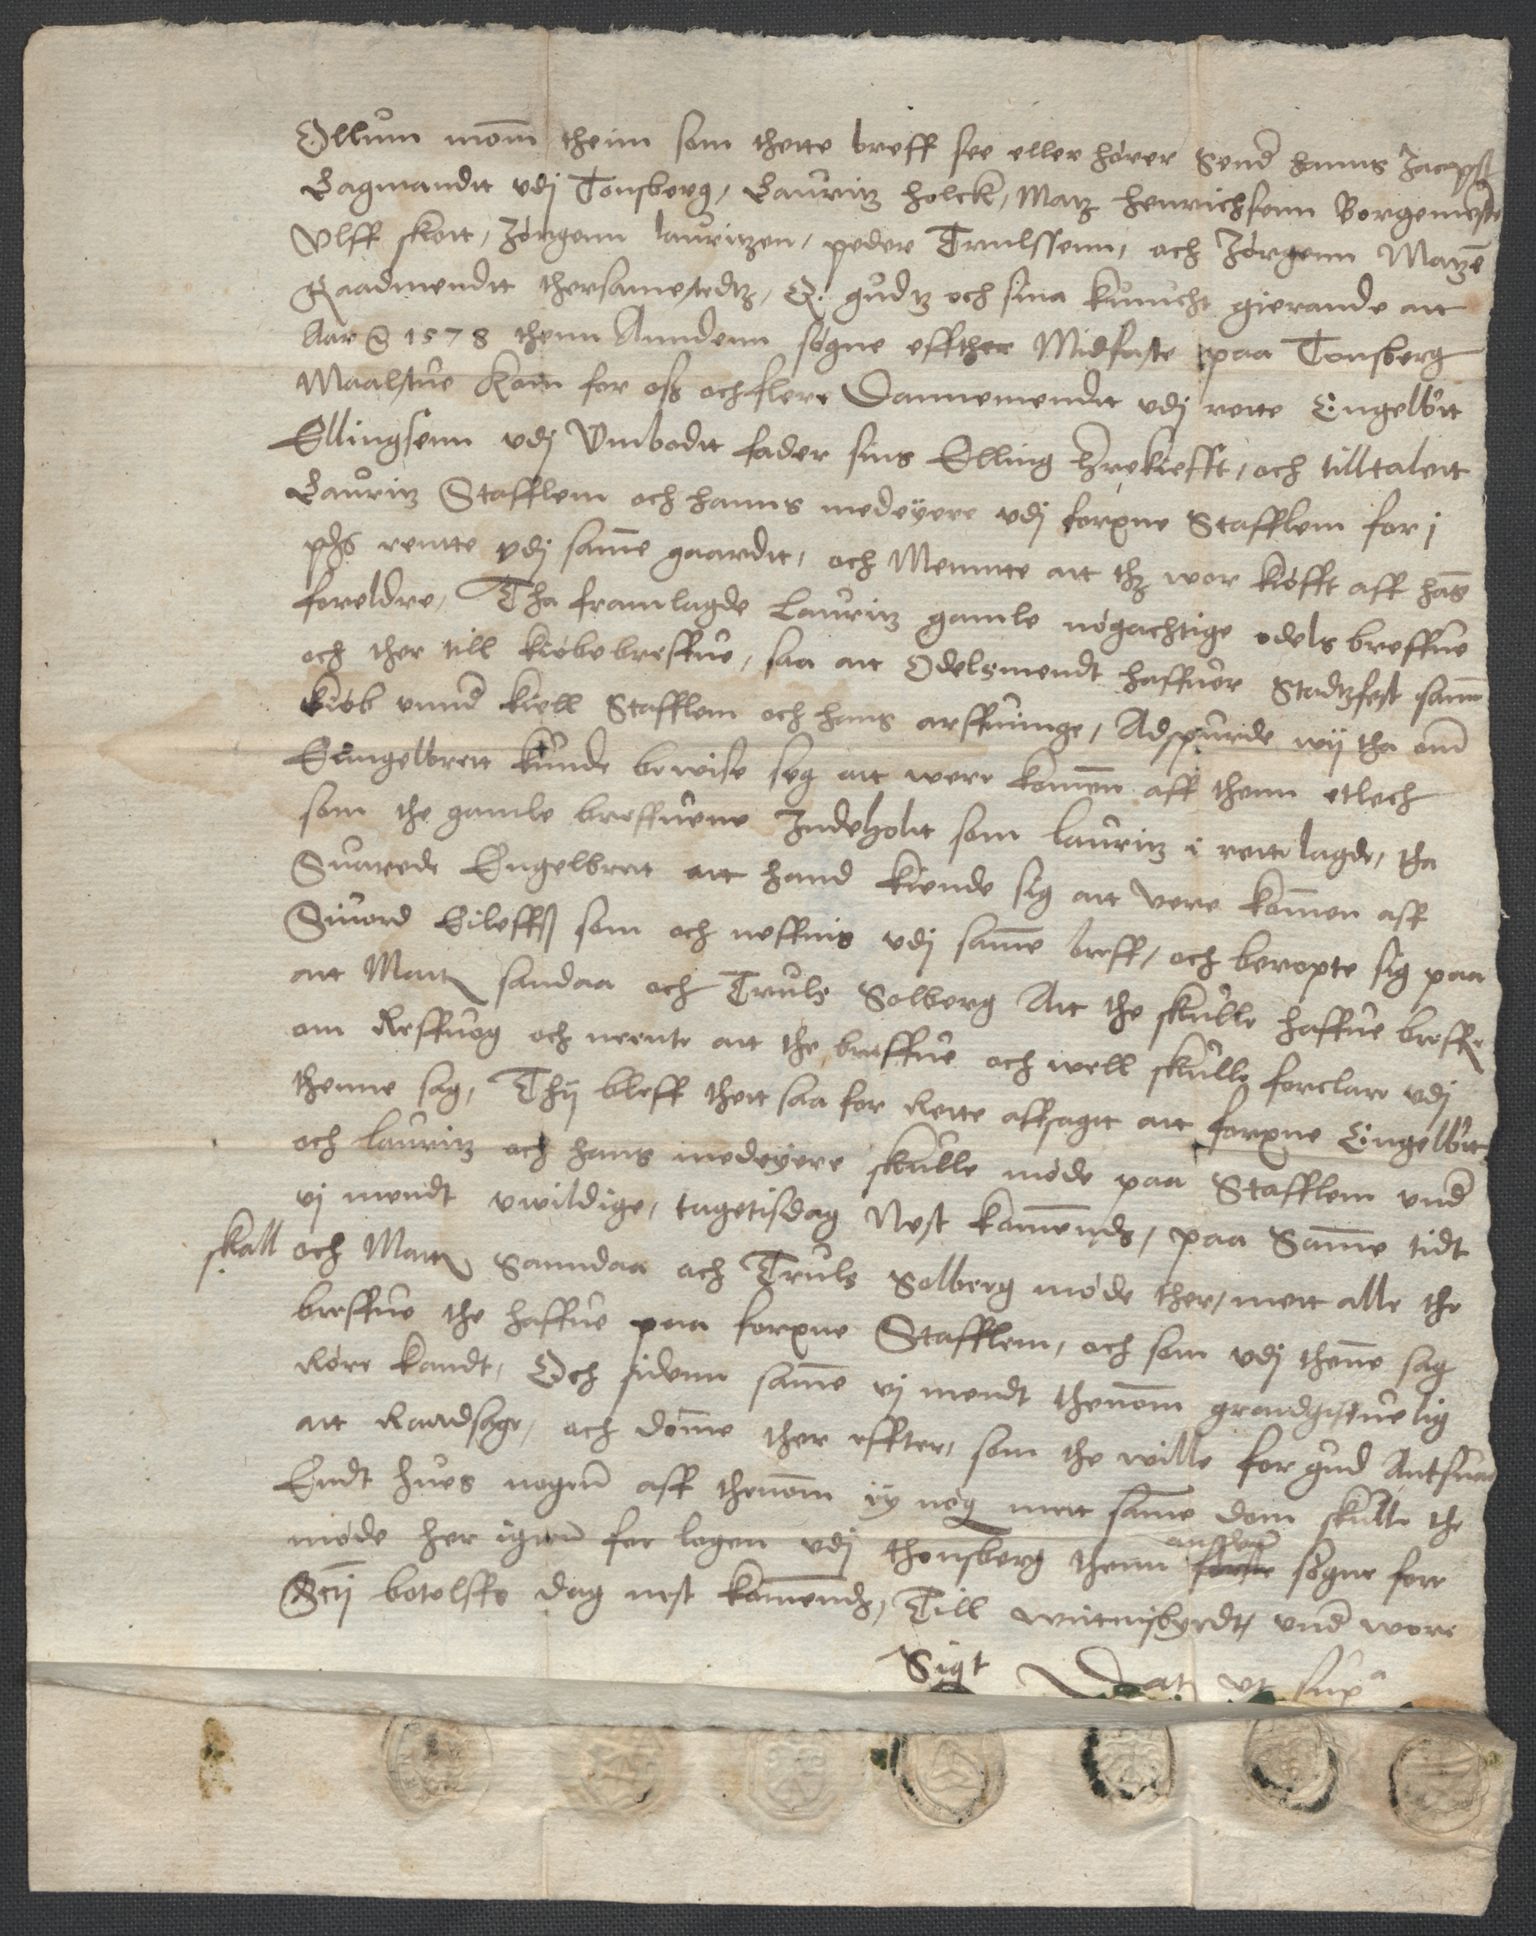 Ollum mom̄ theim som thette breff see eller hører Send hanns Jacopß
Lagmandtt vdj Tonsberg, Lauritz holck, Matz henrichsenn Borgemeste
Vlff skott, Jørgenn lauritzen, peder Trulssenn, och Jørgenn Matzē
Raadmendtt thersamestedtz, Q. gudtz och sina kunucht gierande att
Aar ⁊ 1578 thenn Anndenn søgne effther Midfaste paa Tonsberg
Maalstue Kom for oß och flere Dannemendtt vdj rette Engelbrtt
Ellingsenn vdj Vmbodtt fader sins Elling och tilltalett
Lauritz Stafflem och hanns medeyere vdj forxne Stafflem for j
pḥs rentte vdj samme gaardtt, och Mennte att thz wor kiøfft aff hans
foreldre, Tha framlagde Lauritz gamle nøgachtige odels breffue
och ther till kiøbebreffue, saa att Odelsmendt haffuer Stadtzfest samme
kiøb vnnd kiell Stafflem och hans arffuinge, Adspurde wij tha om
Engelbrett kunde bewise seg att were komen aff thenn etlech
som the gamle breffuene Indeholtt som lauritz i rette lagde, tha
Suarede Engelbrett att hand kiende sig att vere kommen aff
Siuord Eileffß som och neffnis vdj samme breff, och beropte sig paa
att Matz sandaa och Truls Solberg Att the skulle haffue breffue
om Reffuog och mente att the breffue och well skulle forclare vdj
thenne sag, Thij bleff thett saa for Rette affsagtt att forxne Engelbrtt
och lauritz och hans medeyere skulle møde paa Stafflem vnd
vj mendt vwildige, tagetisdag Nest komends, paa Samme tidt
skall och Matz Sanndaa och Truls Solberg møde ther, mett alle the
breffue the haffue paa forxne Stafflem, och som vdj thenne sag
Røre kandt, Och sidenn samme vj mendt thennom grandgiffuelig
att Randsage, och domme ther effter, som the wille for gud Antsuare
Endt hues nogen aff thennom ey nøg mett same dom skulle the
møde her igen for logen vdj thonsberg thenn ~~første~~ anden søgne fore
Sctj botolffs dag nest komends, Till wittnisbyrdt vnd wore
Sigt Dat vt supᵃ